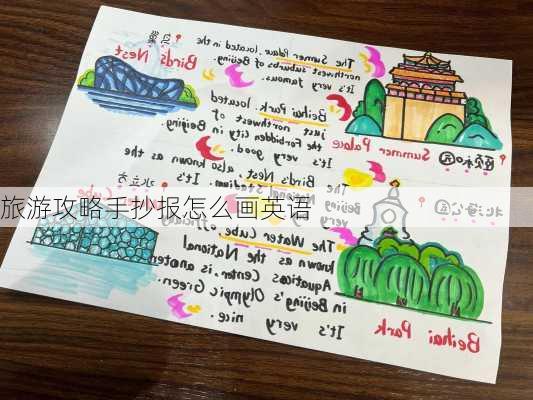 鸟巢
Birds Nest
The Summer Palace, located in the
northwest suburbs of Beijing.
It's very famous.
Summer Palace
颐和园
Beihai Park, located
just northwest of
the Forbidden City in Beijing.
It's very good.
The Birds Nest, also known as the
Beijing National Stadium. It's
very
水立方
Cube
旅游攻略手抄报怎么画英语
北海公园
The Water Cube,
known as the National
Aquatics Center, is
in Beijing's Olympic Green.
It's very nice.
Beihai Park